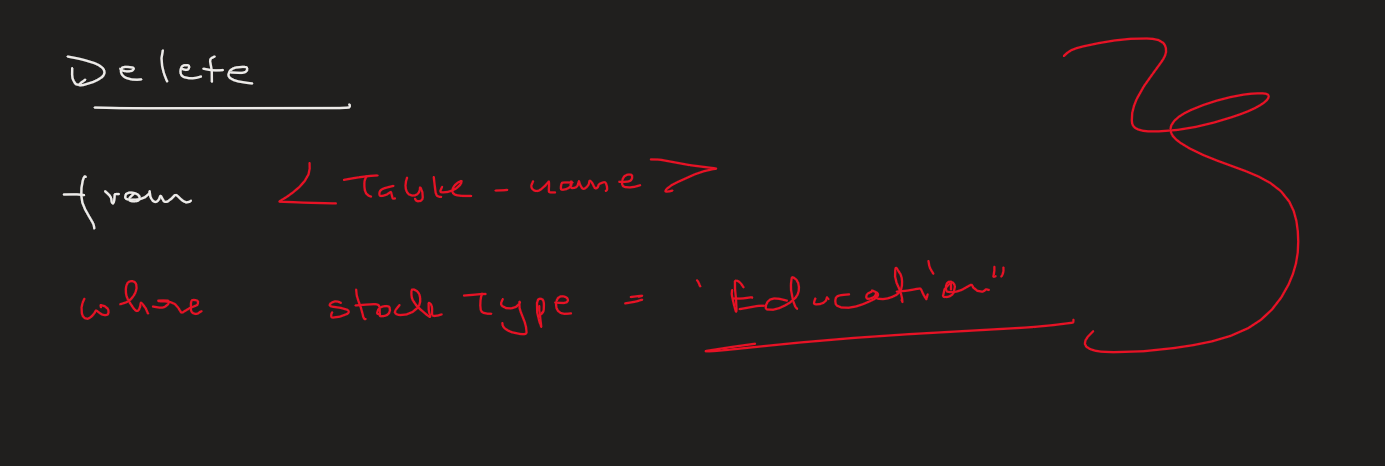 Delete
from <Table-name>
where stock Type = 'Education"